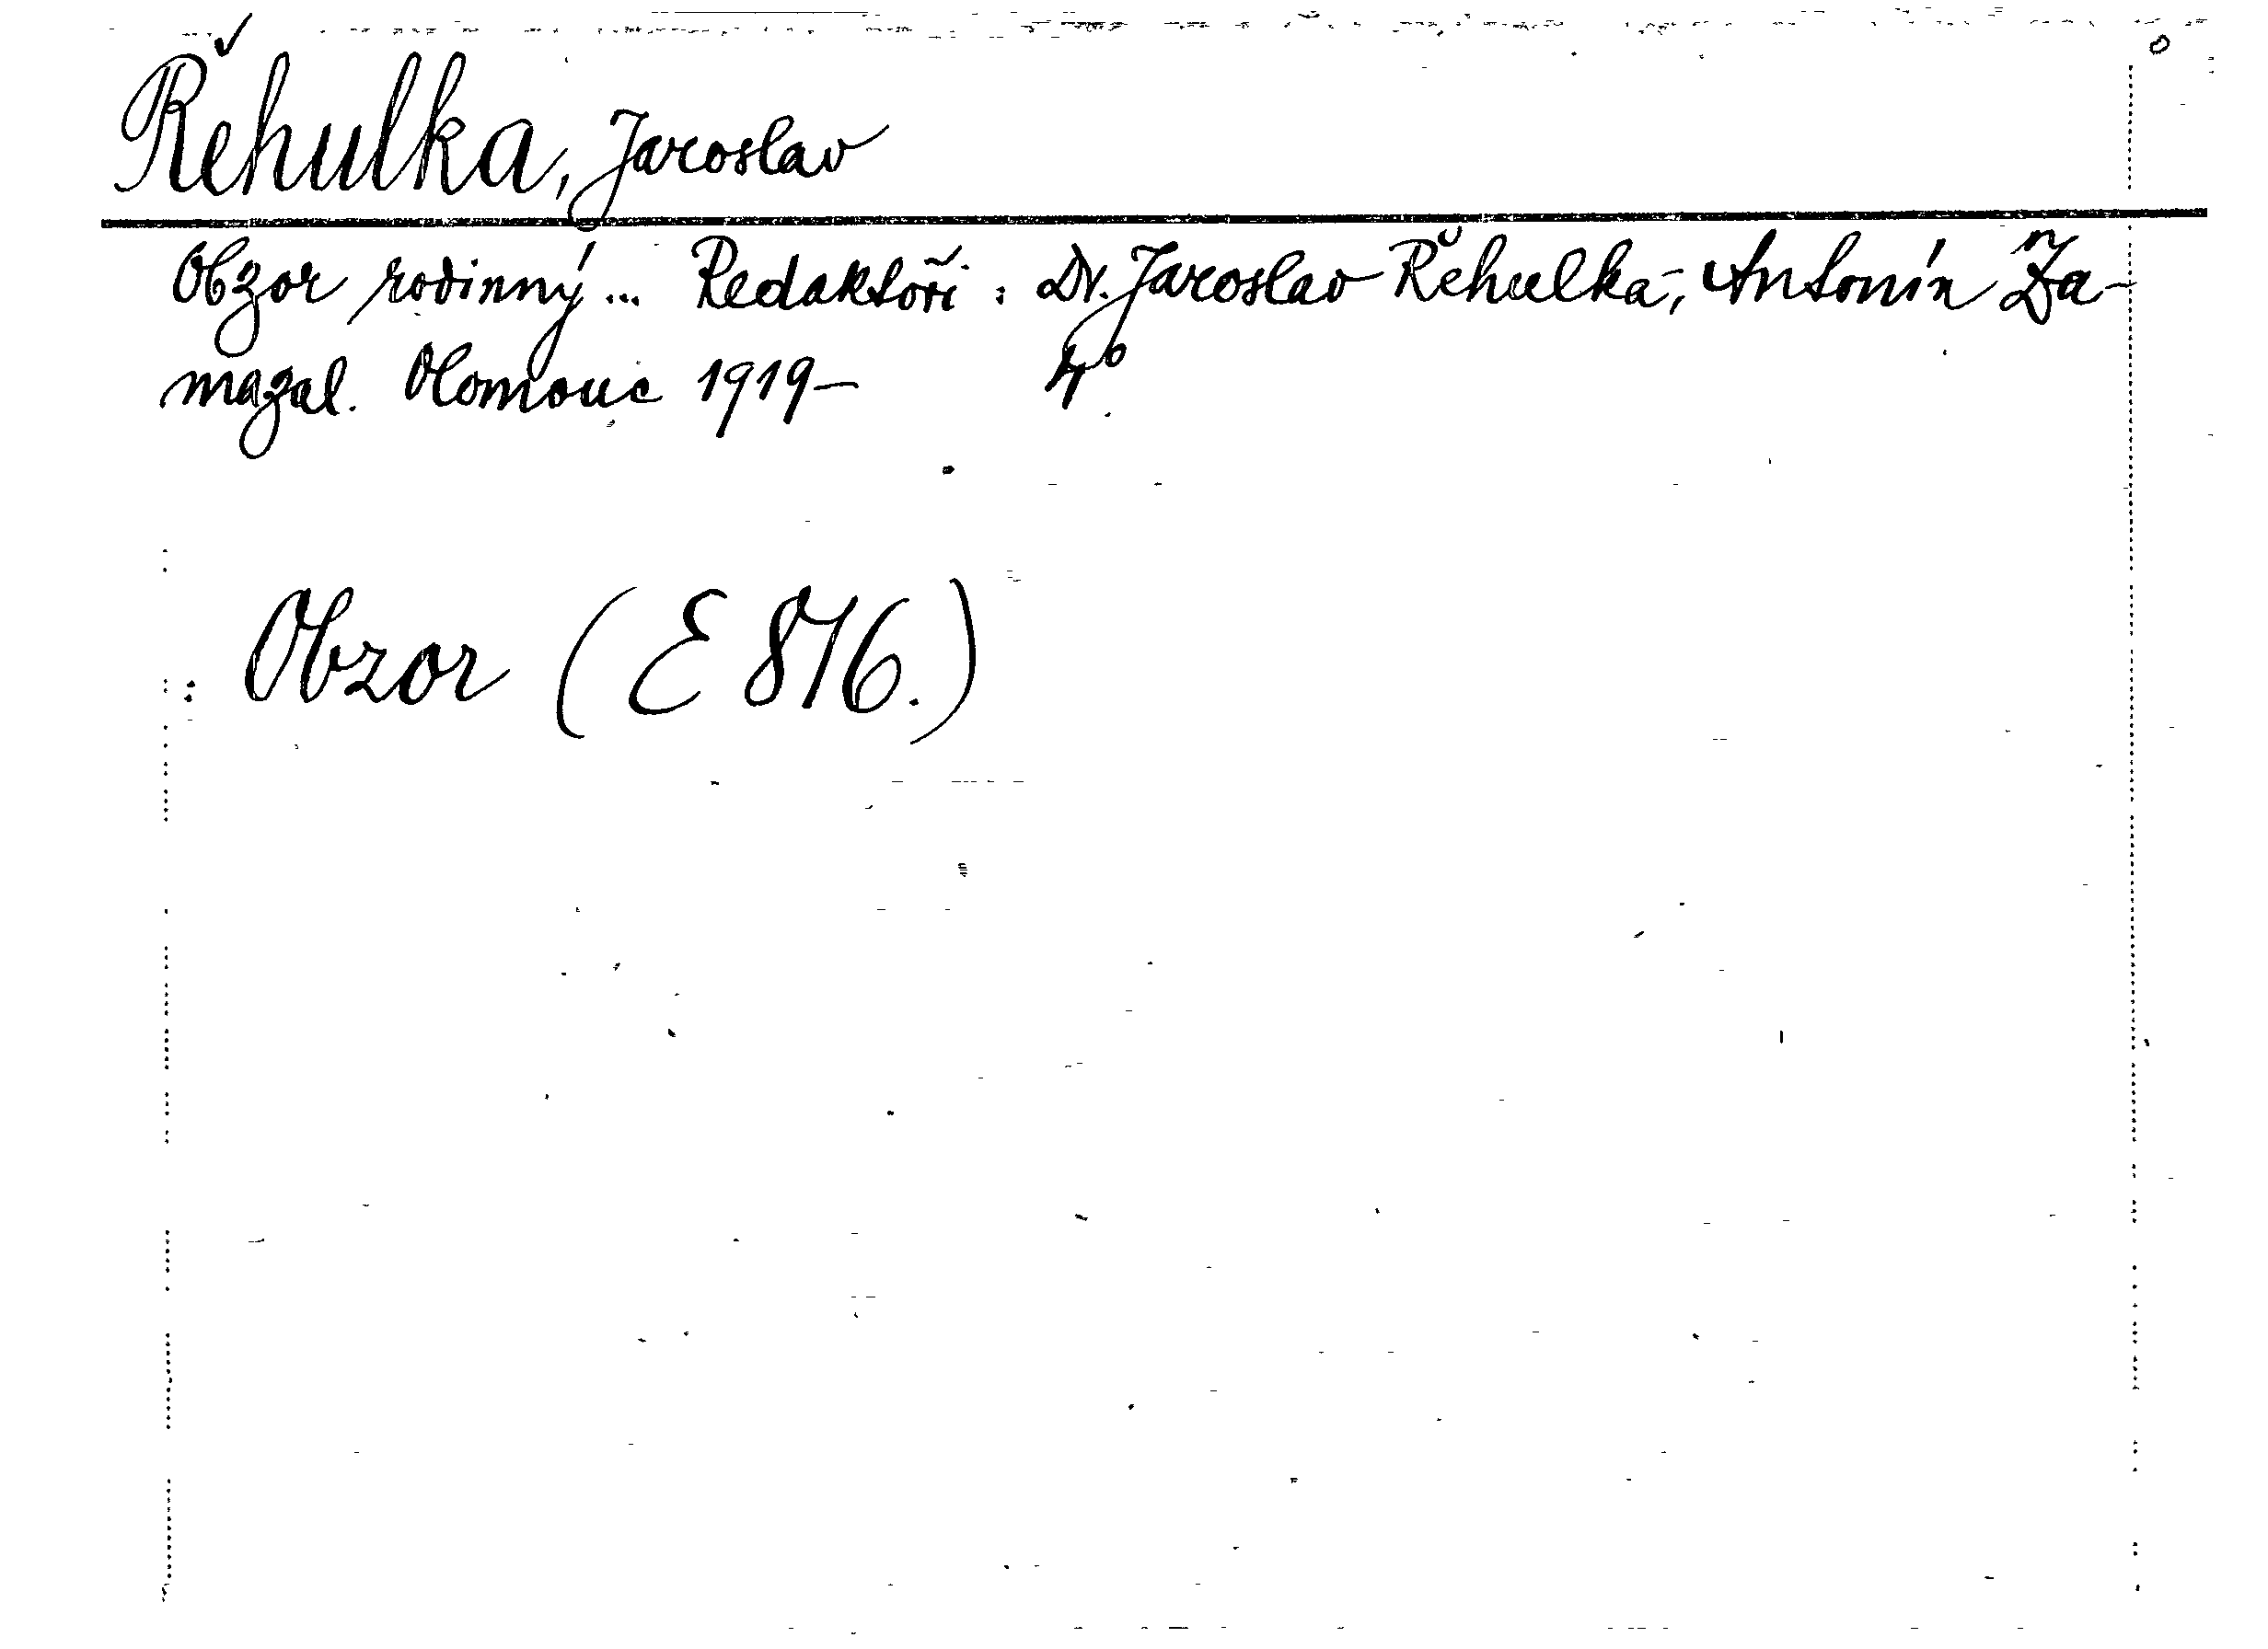 Řehulka, Jaroslav
Obzor rodinný... Redaktoři: Dr. Jaroslav Řehulka, Antonín Za-
mazal. Olomouc 1919– 4°
Obzor (E 876.)